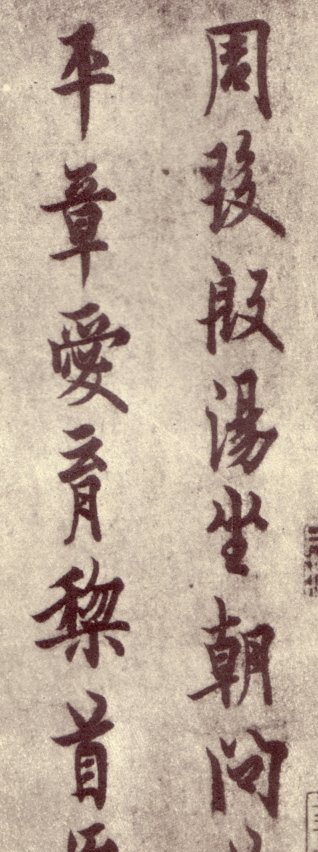 周發殷湯坐朝問
平章愛育黎首